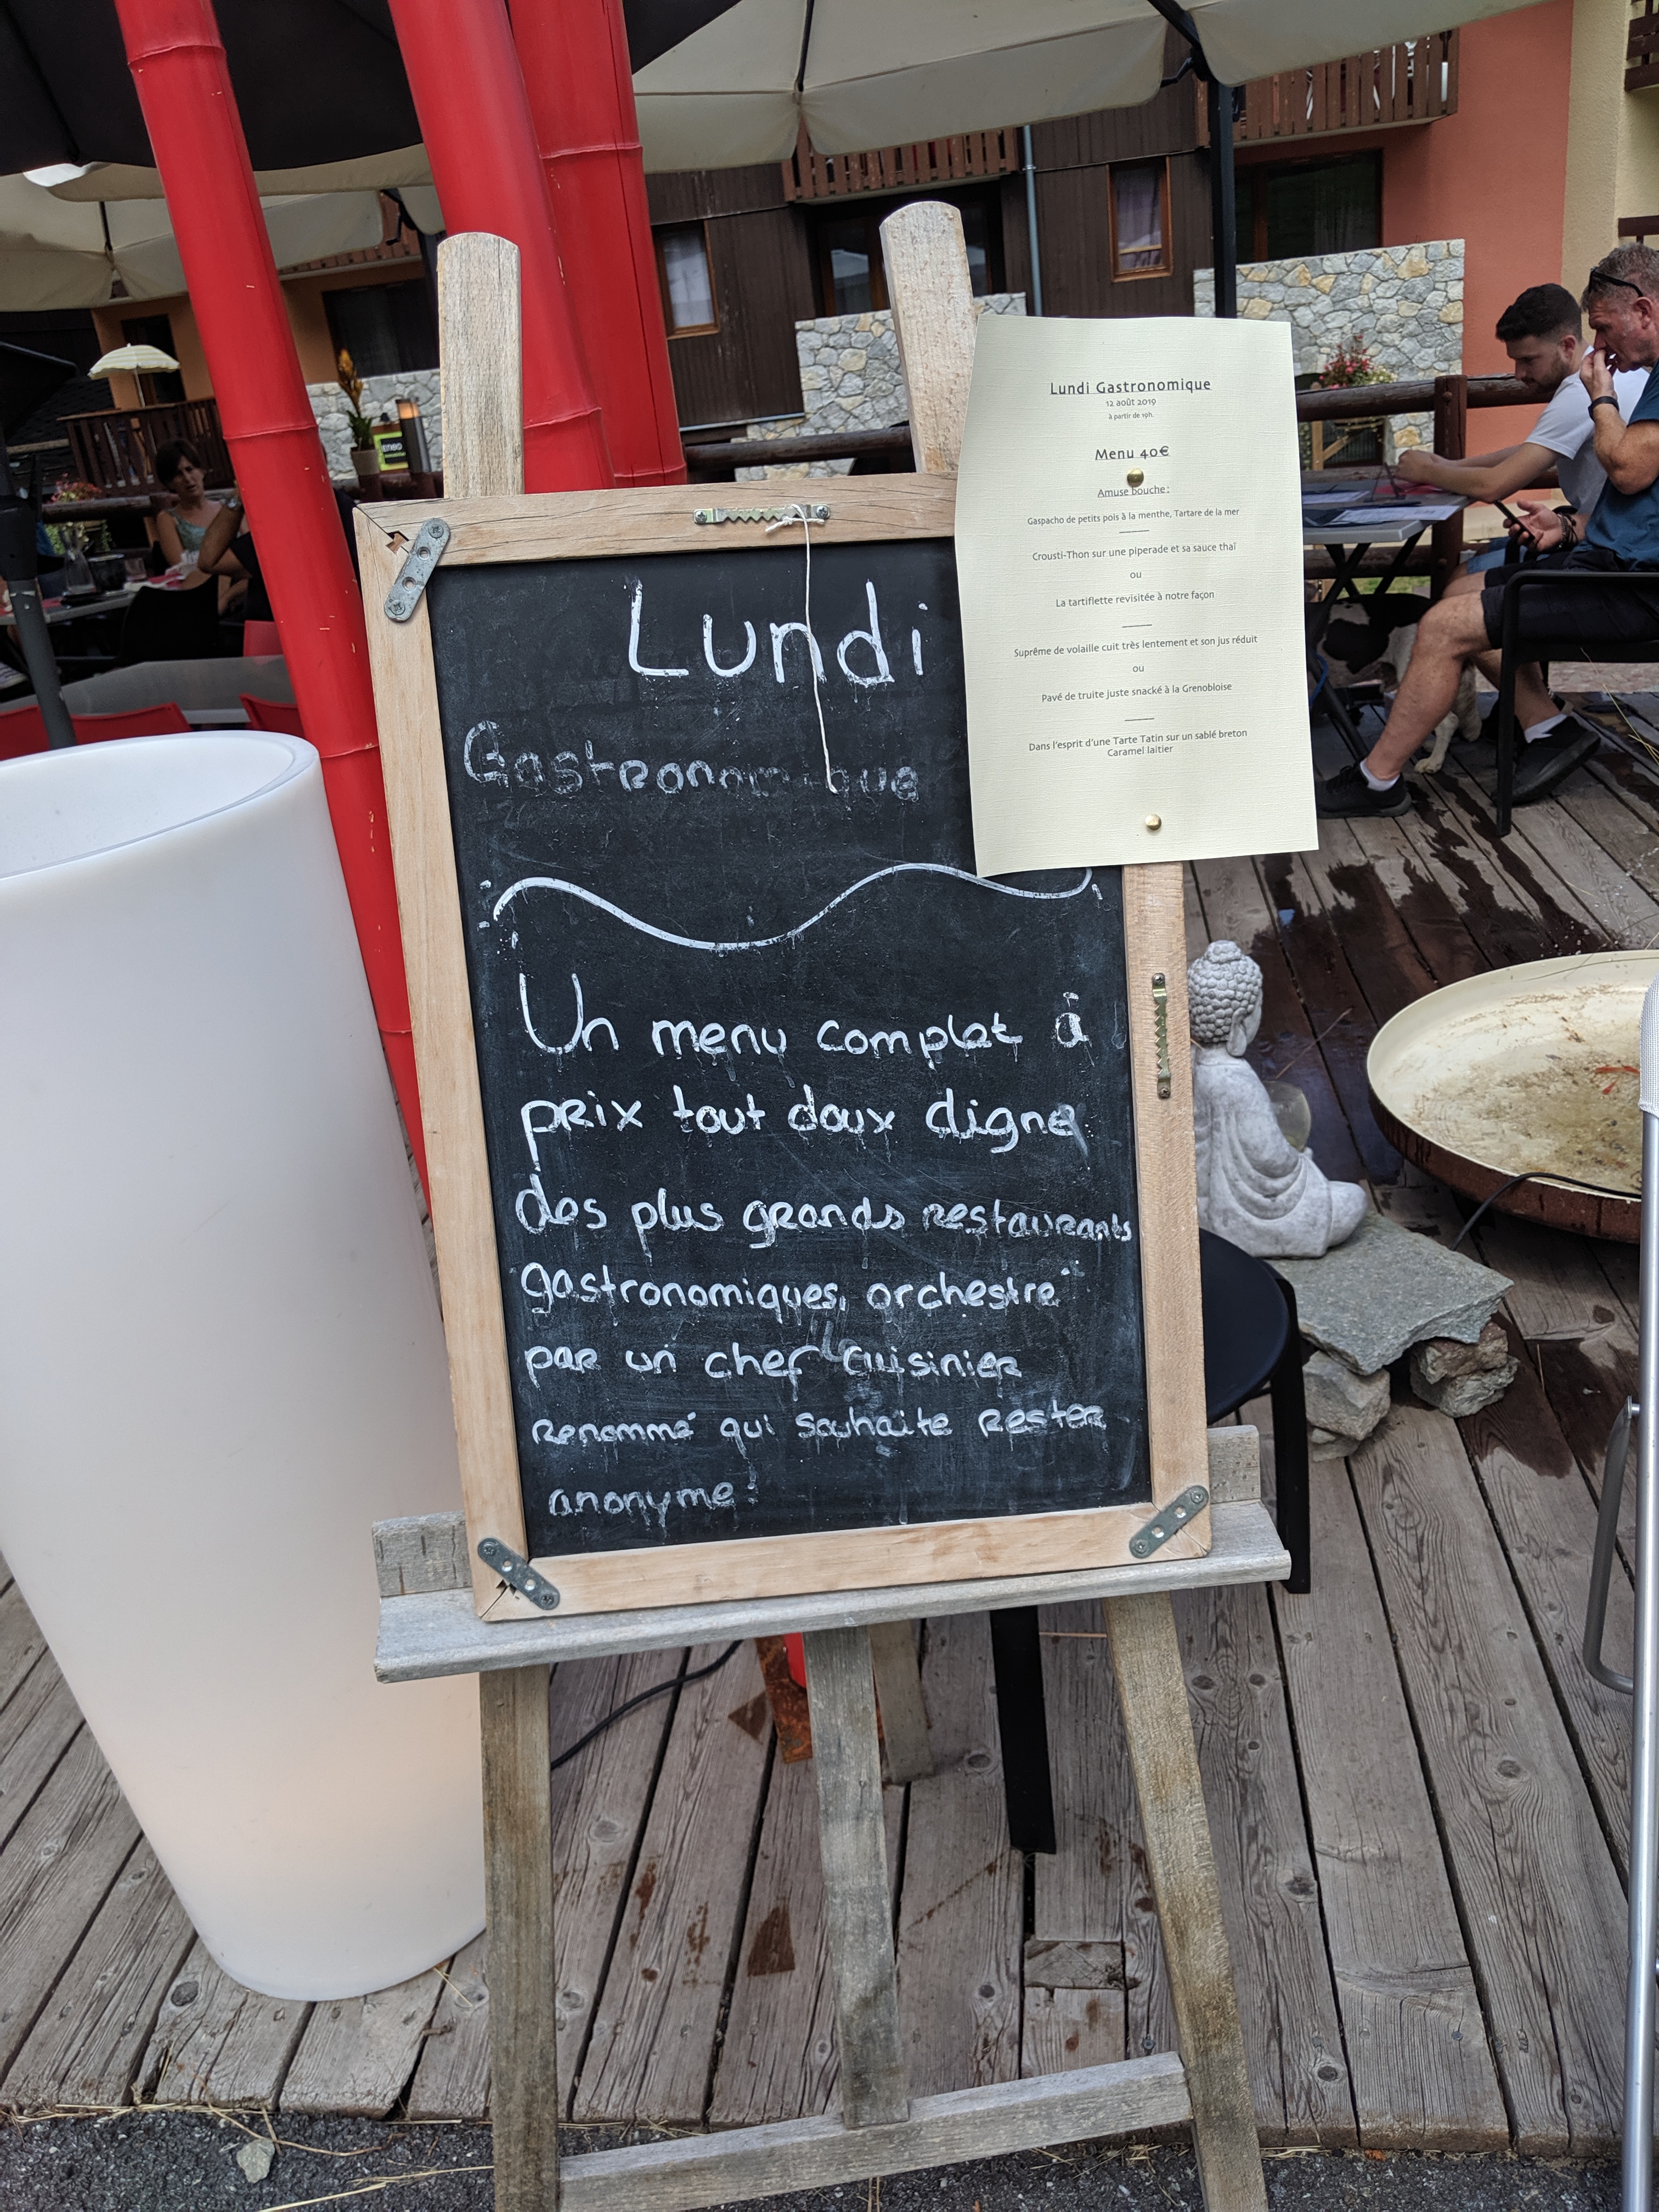 Lundi
Gastronomique
Un menu complet à
prix tout doux digne
des plus grands restaurants
gastronomiques, orchestré
par un chef cuisinier
renommé qui souhaite rester
anonyme!
Lundi Gastronomique
12 août 2019
à partir de 19h.
Menu 40€
Amuse bouche :
Gaspacho de petits pois à la menthe, Tartare de la mer
Crousti-Thon sur une piperade et sa sauce thaï
ou
La tartiflette revisitée à notre façon
Suprême de volaille cuit très lentement et son jus réduit
ou
Pavé de truite juste snacké à la Grenobloise
Dans l'esprit d'une Tarte Tatin sur un sablé breton
Caramel laitier